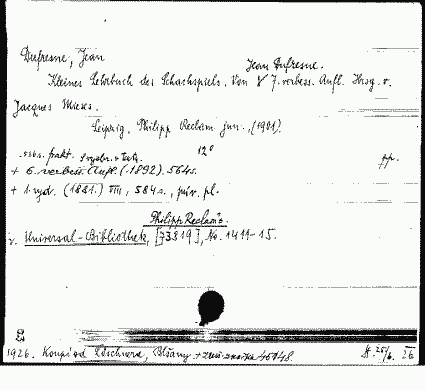 Dufresne, Jean
Jean Dufresne.
Kleines Lehrbuch des Schachspiels. Von 7. verbess. Aufl. Hrsg. v.
Jacques Mieses.
Leipzig, Philipp Reclam jun., (1901).
12°
frakt. pp.
+ 6. verbess. Aufl. (1892). 564 s.
+ 1. vyd. (1881.) VIII, 584 s., pův. pl.
Philipp Reclam's
Universal-Bibliothek, [73819], No. 1411-15.
1926. Koupí od Blšany.